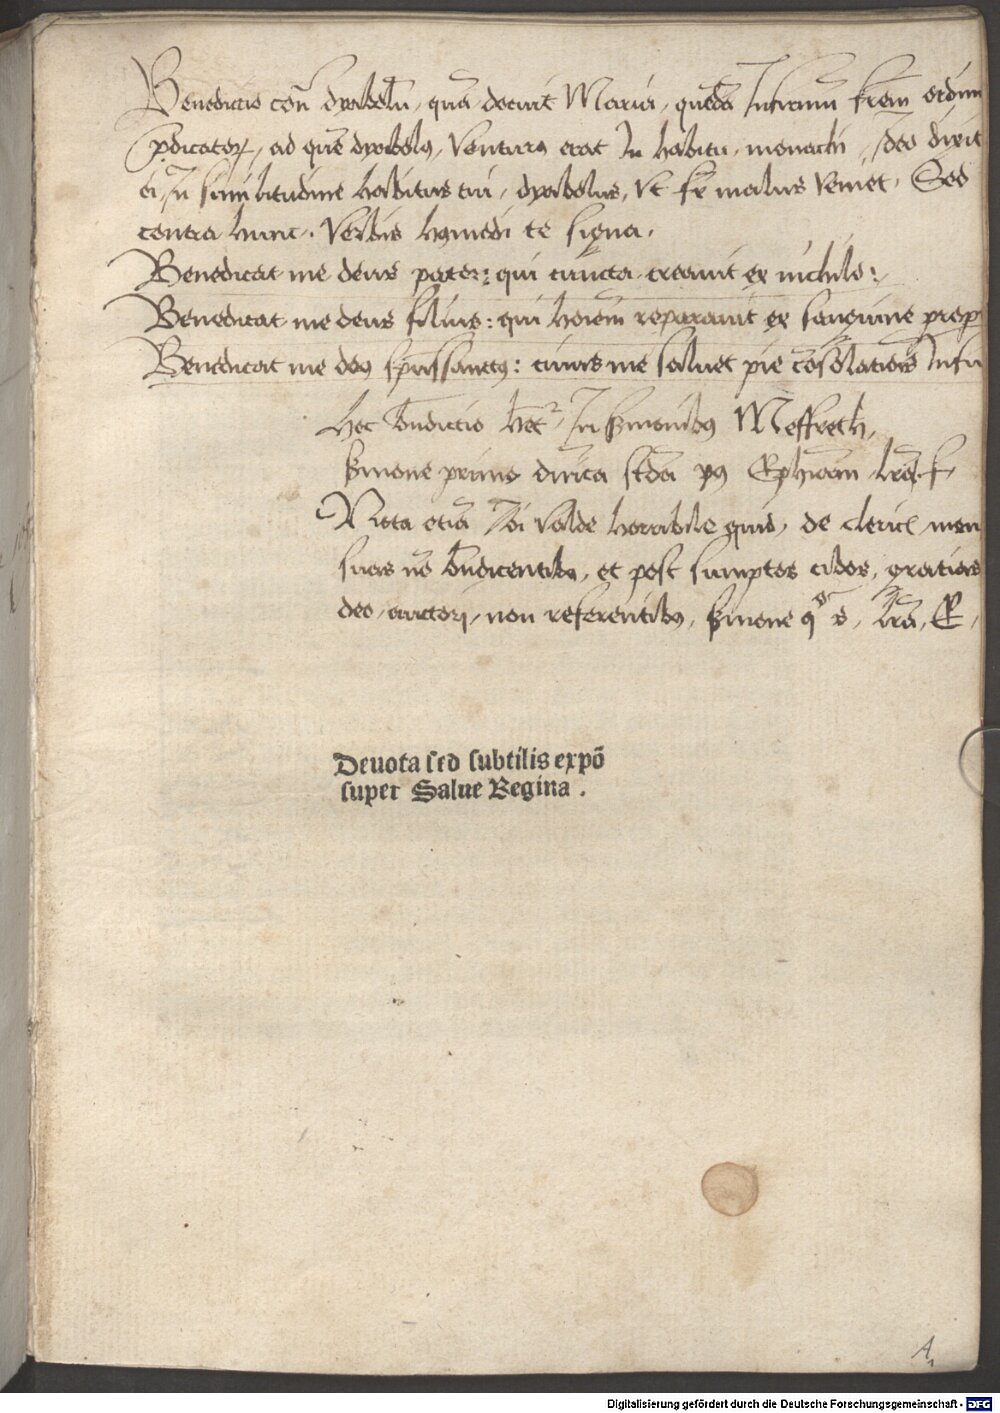 Benedictio coñ dyabolū, quā docuit Maria, quēdā Infirmū frēm ordinis
p̄dicatoꝝ, ad quē dyabolꝰ, venturꝰ erat In habitu monachi, Ideo dixit
ei, In similitudine habitus tui, dyabolus, vt fr̄ malus veniet, Sed
contra hunc. Verbis hꝰmodi te signa.
Benedicat me deus pater: qui cuncta creauit ex nichilo:
Benedicat me deus filius: qui hoīem reparauit ex sanguine prop
Benedicat me deꝰ spūssanctꝰ: cuius me saluet pie cōsolatiōis Infu
Hec bn̄dictio het², In sermonibꝰ Meffreth,
sermone primo dn̄ica scd̄a pꝰ Ephiam lrā f
Nota etiā Ibi valde horribile quid, de clericꝭ men
suas nō bn̄dicentibꝰ, et post sumptos cibos, gratias
deo, auctori, non referentibꝰ, sermone lrā, E,
Deuota sed subtilis expō
super Salue Regina.
A
Digitalisierung gefördert durch die Deutsche Forschungsgemeinschaft - DFG